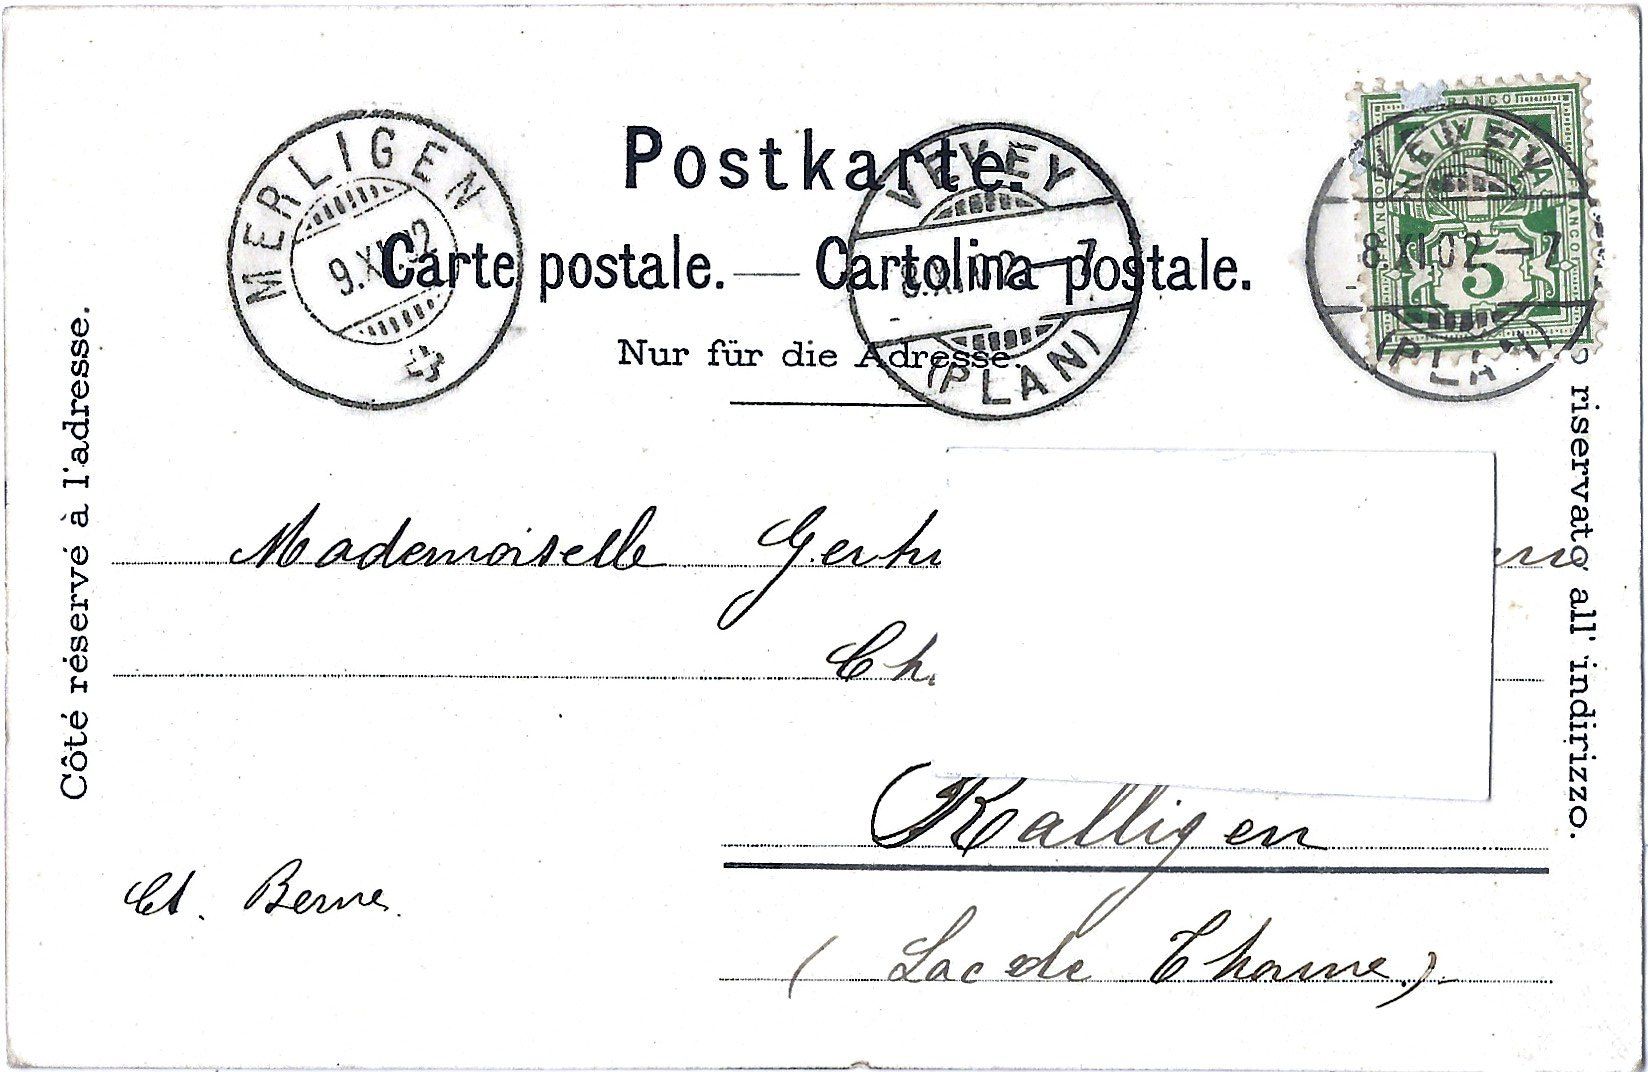 Postkarte.
Carte postale. — Cartolina postale.
Nur für die Adresse.
MERLIGEN
9.XI.02
VEVEY
8.XI.02—7
(PLAN)
FRANCO
HELVETIA
5
VEVEY
8.XI.02—7
(PLAN)
Côté réservé à l'adresse.
riservato all' indirizzo.
Mademoiselle
Ralligen
Ct. Berne.
(Lac de Thoune).